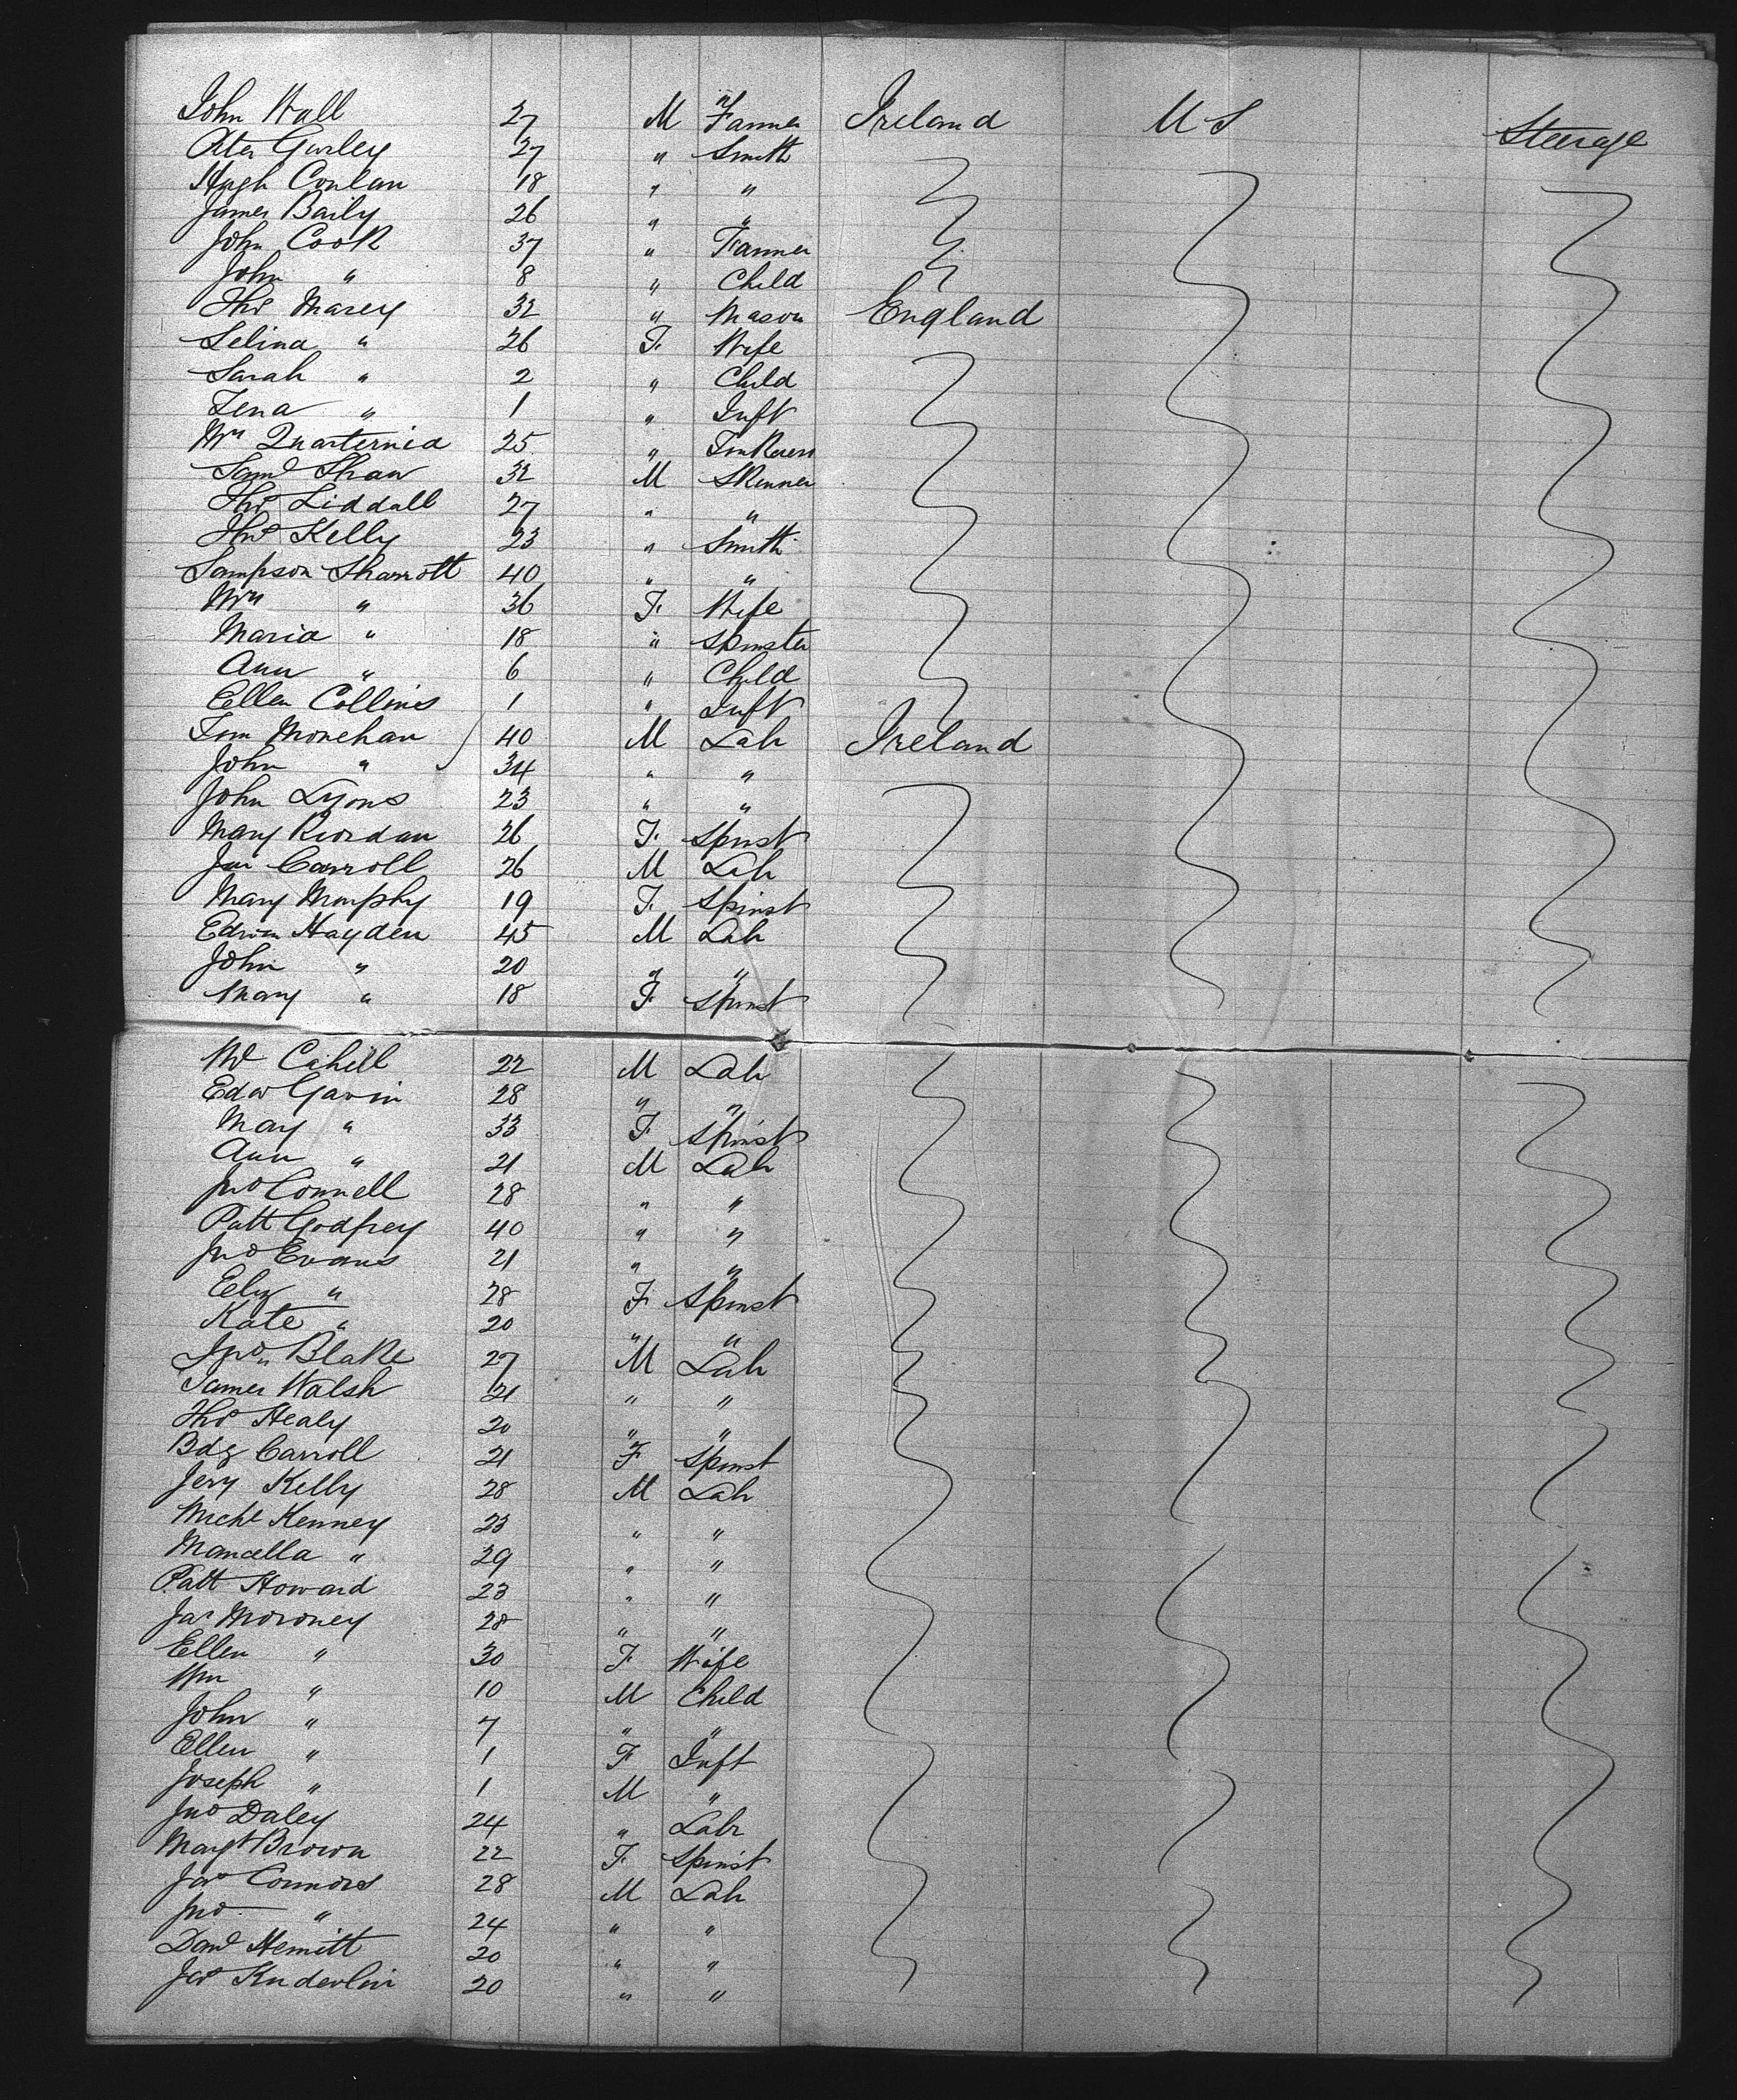 John Hall 27 M Farmer Ireland U S Steerage
Peter Gurley 27 " Smith
Hugh Conlan 18 " "
James Baily 26 " "
John Cook 37 " Farmer
John " 8 " Child
Thos Marey 32 " Mason England
Selina " 26 F. Wife
Sarah " 2 " Child
Lena " 1 " Inft
Mrs 25 "
Saml Shaw 32 M Skinner
Thos Liddall 27 " "
Thos Kelly 23 " Smith
Sampson Sharrott 40 " "
Mrs " 36 F. Wife
Maria " 18 " Spinster
Ann " 6 " Child
Ellen Collins 1 " Inft
Tom Monehan 40 M Lab Ireland
John " 34 " "
John Lyons 23 " "
Mary Riordan 26 F. Spinst
Jas Carroll 26 M Lab
Mary Murphy 19 F. Spinst
Edwin Hayden 45 M Lab
John " 20 " "
Mary " 18 F Spinst
Ml Cahill 22 M Lab
Edw Gavin 28 " "
May " 33 F Spinst
Ann " 21 M Lab
Jno Connell 28 " "
Patt Godfrey 40 " "
Jno Evans 21 " "
Eliz " 28 F Spinst
Kate " 20 " "
Jno Blake 27 M Lab
James Walsh 21 " "
Thos Healy 20 " "
Bdg Carroll 21 F Spinst
Jery Kelly 28 M Lab
Michl Kenney 23 " "
Marcella " 29 " "
Patt Howard 23 " "
Jas Moroney 28 " "
Ellen " 30 F Wife
Wm " 10 M Child
John " 7 " "
Ellen " 1 F Inft
Joseph " 1 M "
Jno Daley 24 " Labr
Margt Brown 22 F. Spinst
Jas Connors 28 M Lab
Jno " 24 " "
Danl Hemitt 20 " "
Jas Kinderlin 20 " "